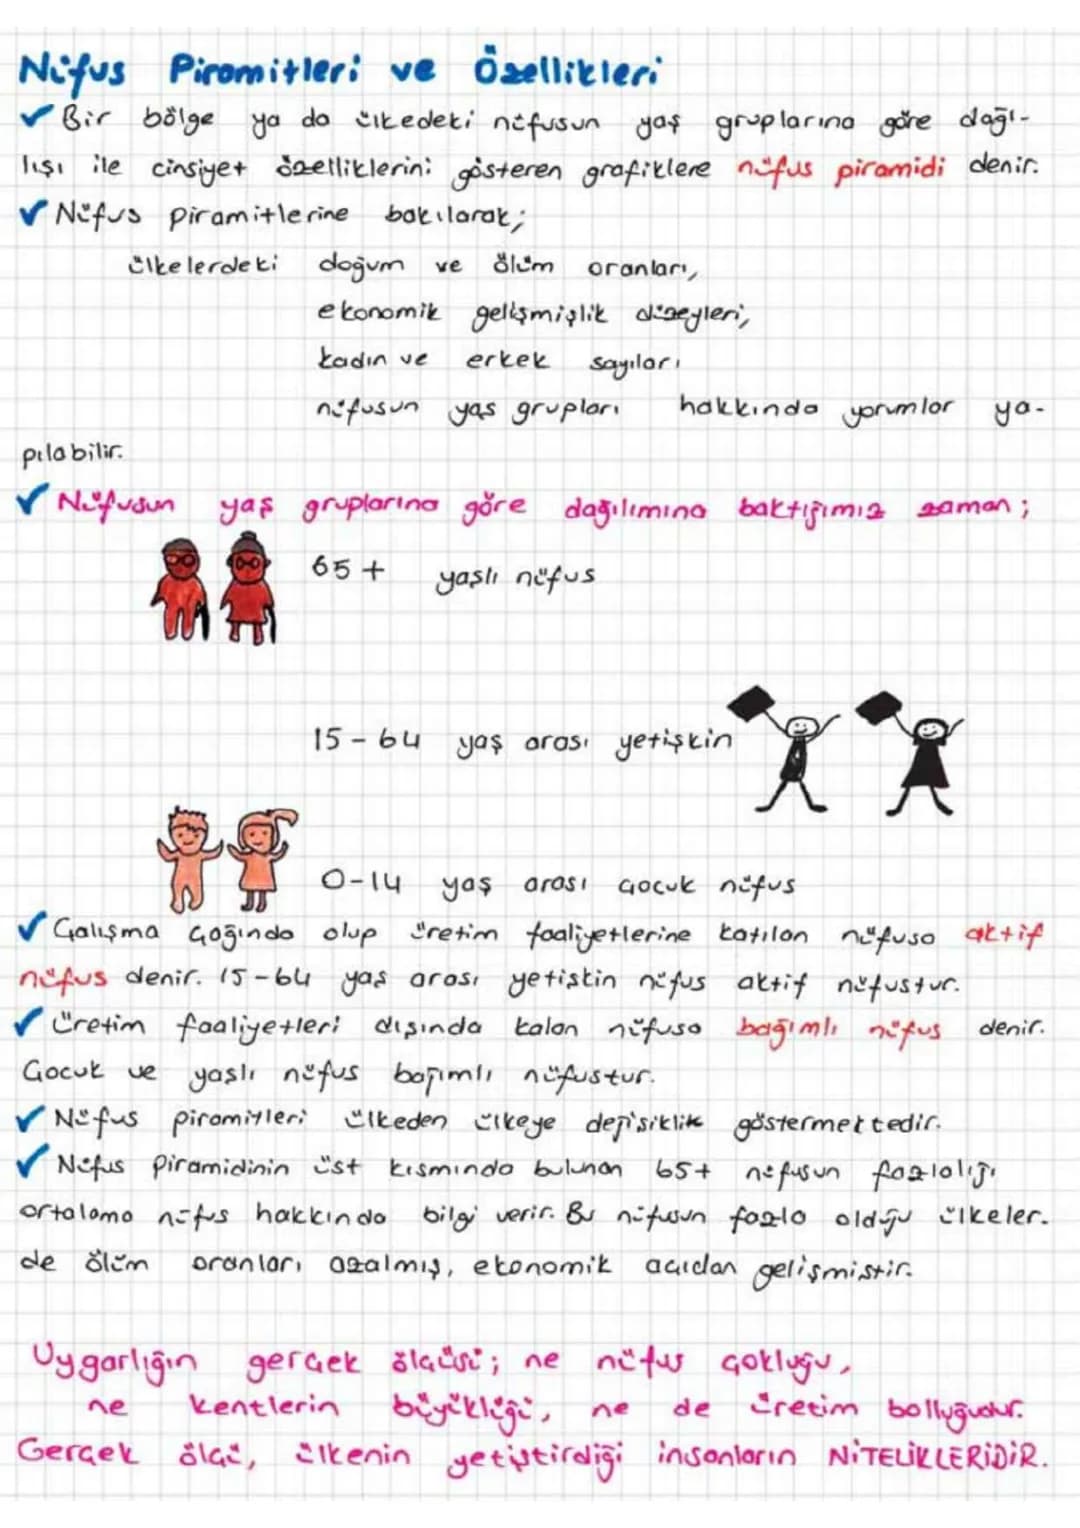 Nüfus Piramitleri ve Özellikleri
✓ Bir bölge ya da ülkedeki nüfusun yaş gruplarına göre dağı-
lışı ile cinsiyet özelliklerini gösteren grafiklere nüfus piramidi denir.
✓ Nüfus piramitlerine bakılarak;
ülkelerdeki doğum ve ölüm oranları,
ekonomik gelişmişlik düzeyleri,
kadın ve erkek sayıları
nüfusun yaş grupları hakkında yorumlar ya-
pılabilir.
✓ Nüfusun yaş gruplarına göre dağılımına baktığımız zaman;
65+ yaşlı nüfus
15-64 yaş arası yetişkin
0-14 yaş arası çocuk nüfus
✓ Çalışma çağında olup üretim faaliyetlerine katılan nüfusa aktif
nüfus denir. 15-64 yaş arası yetişkin nüfus aktif nüfustur.
✓ Üretim faaliyetleri dışında kalan nüfusa bağımlı nüfus denir.
Çocuk ve yaşlı nüfus bağımlı nüfustur.
✓ Nüfus piramitleri ülkeden ülkeye değişiklik göstermektedir.
✓ Nüfus piramidinin üst kısmında bulunan 65+ nüfusun fazlalığı
ortalama nüfus hakkında bilgi verir. Bu nüfusun fazla olduğu ülkeler.
de ölüm oranları azalmış, ekonomik açıdan gelişmiştir.
Uygarlığın gerçek ölçüsü; ne nüfus çokluğu,
ne kentlerin büyüklüğü, ne de üretim bolluğudur.
Gerçek ölçü, ülkenin yetiştirdiği insanların NİTELİKLERİDİR.